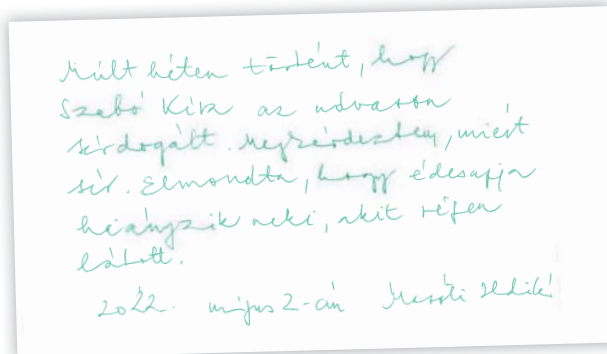 Múlt héten történt, hogy
Szabó Kira az udvaron
sírdogált. Megkérdeztem, miért
sír. Elmondta, hogy édesapja
hiányzik neki, akit régen
látott.
2022. május 2-án Ildikó